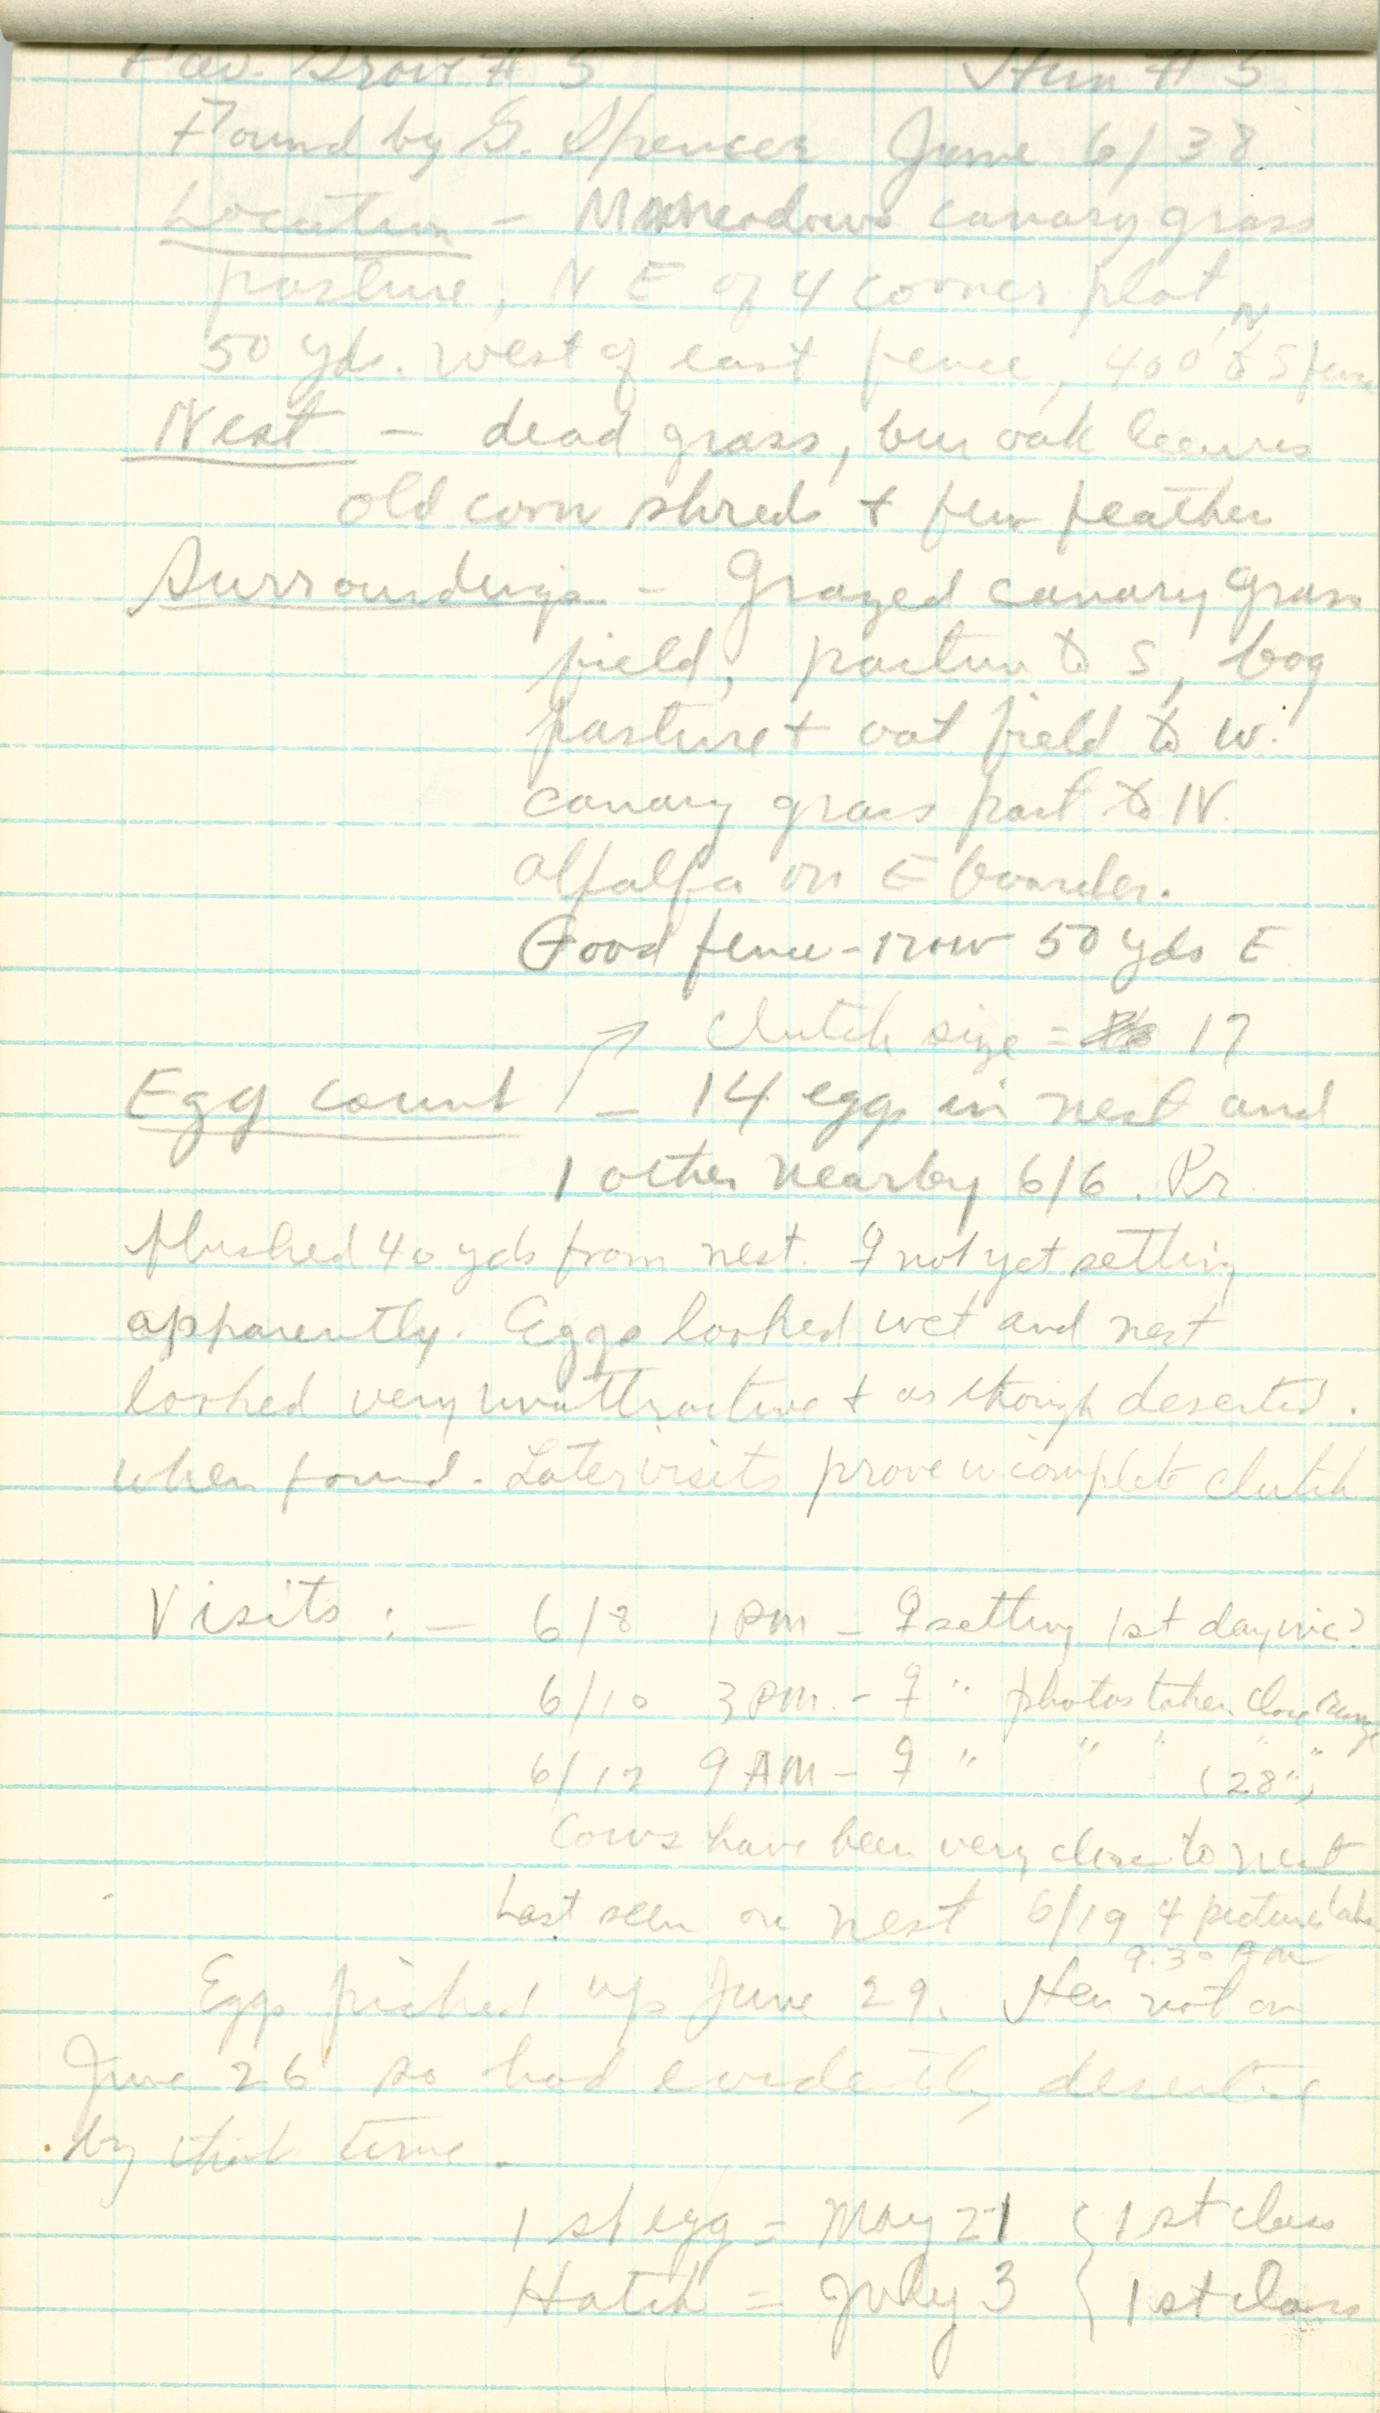 Fav. Grove # 5 Hun # 5
Found by G. Spencer June 6/38
Location - Meadows canary grass
pasture, N E of 4 corner plot
50 yds. west of east fence, 400 N to S fence
Nest - dead grass, bur oak leaves
old corn shreds + few feather
Surroundings - Grazed canary grass
field, pasture to S, bog
pasture + oat field to W.
canary grass past to N.
Alfalfa on E boarder.
Good fence-row 50 yds E
Clutch size = 17
Egg count - 14 eggs in nest and
1 other nearby 6/6. Pr
flushed 40 yds from nest. ♀ not yet setting
apparently. Eggs looked wet and nest
looked very unattractive + as though deserted.
when found. Later visits prove incomplete clutch
Visits : - 6/8 1 PM - ♀ setting 1st day inc?
6/10 3 PM. - ♀ " photos taken close range
6/12 9 AM - ♀ " " " " "
(28")
Cows have been very close to nest
Last seen on nest 6/19 4 pictures taken
9:30 AM
Eggs picked up June 29. Hen not on
June 26 so had evidently deserted
by that time.
1st egg = May 21 { 1st class
Hatch = July 3 { 1st class